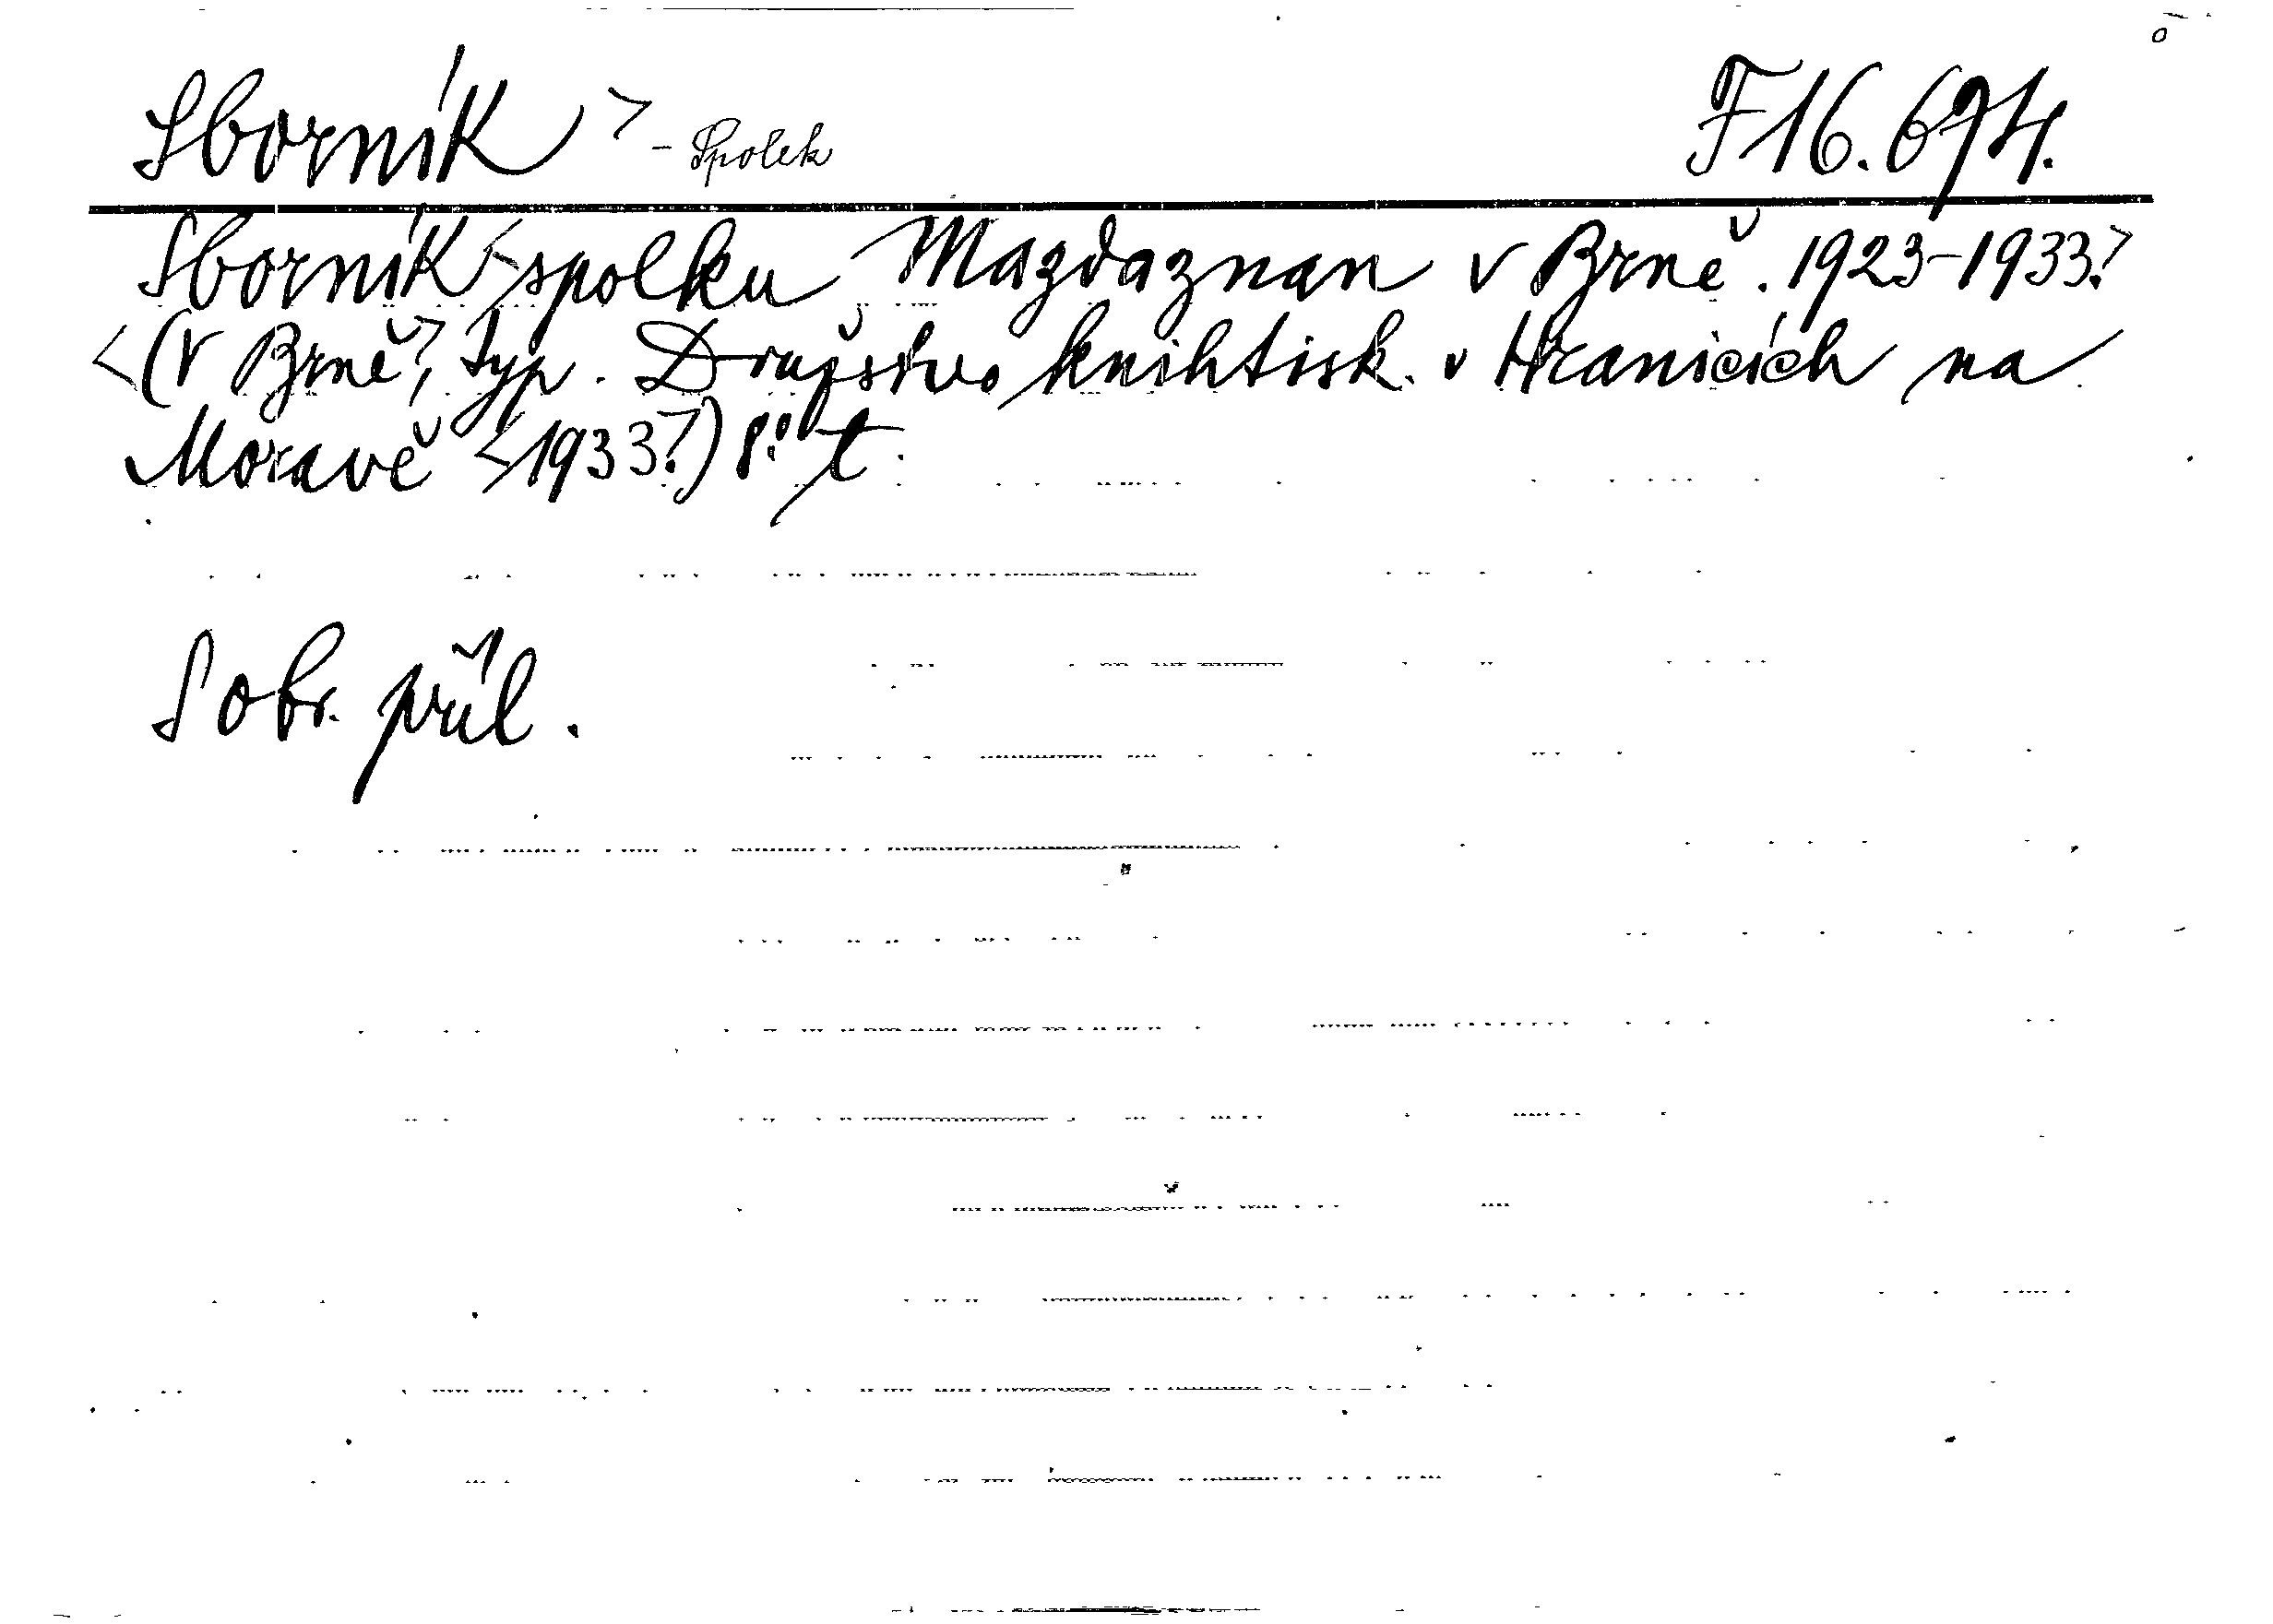 Sborník > - Spolek F16.674.
Sborník < spolku Mazdaznan v Brně. 1923-1933?>
<(V Brně>, Typ. Družstvo knihtisk. v Hranicích na
Moravě <1933?>) 8°. t.
S obr. příl.